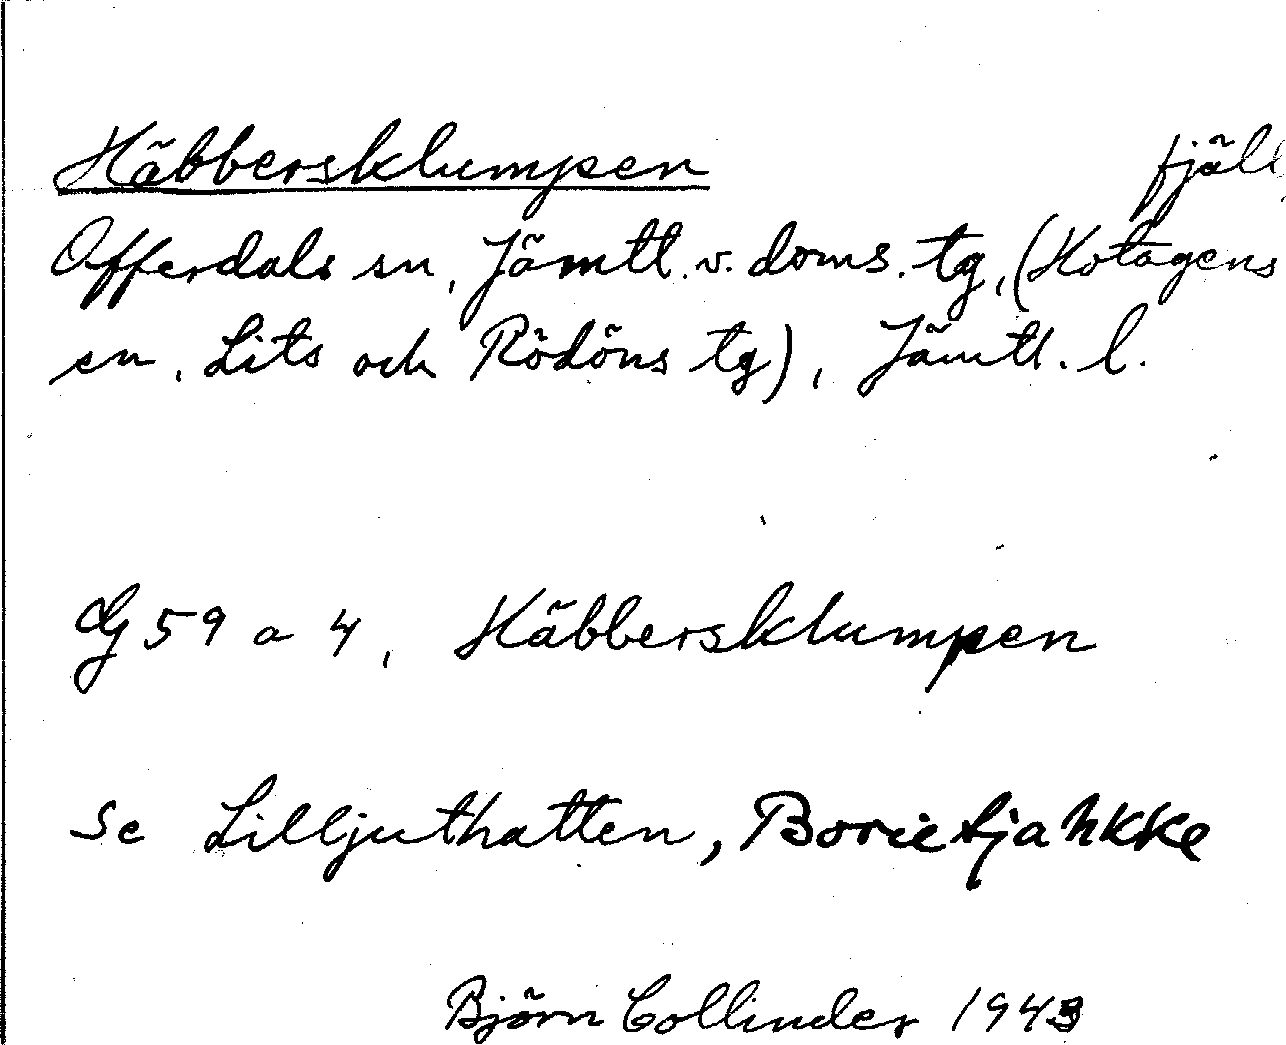 Häbbersklumpen fjäll
Offerdals sn, Jämtl. v. doms. tg, (Hotagens
sn, Lits och Rödöns tg), Jämtl. l.
Lg 59 a 4, Häbbersklumpen
Se Lilljuthatten, Borietjahkke
Björn Collinder 1943